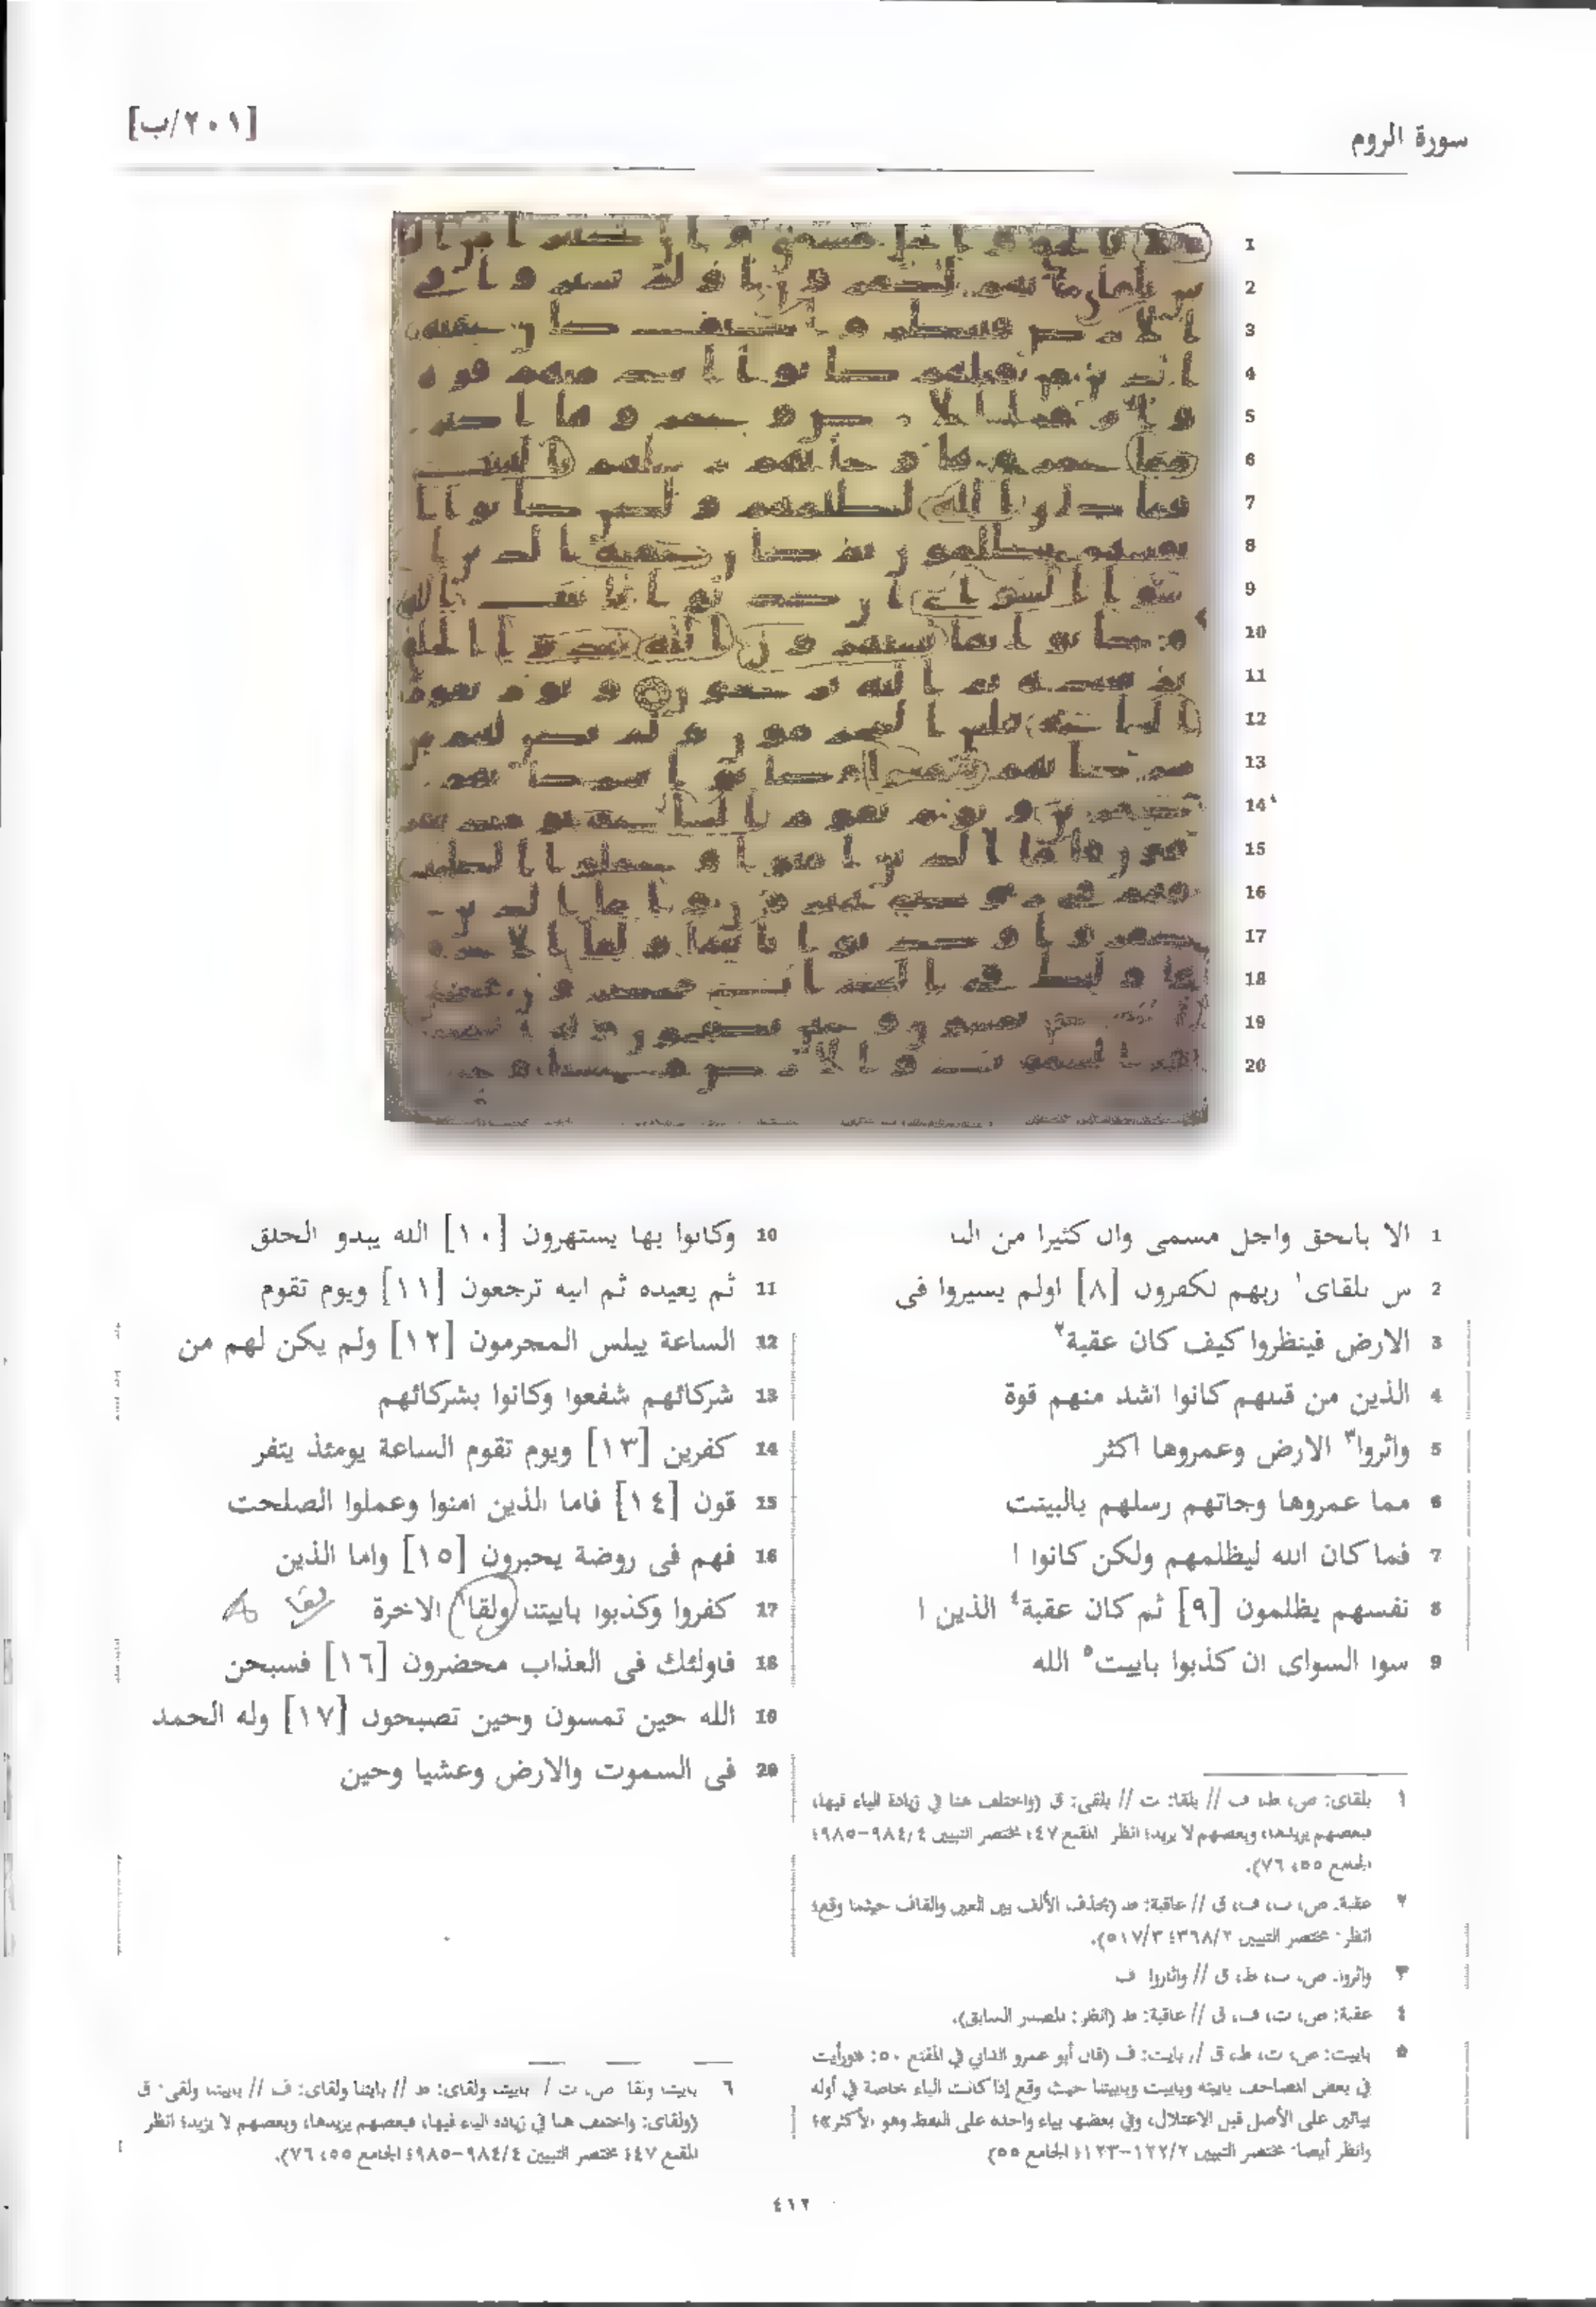 سورة الروم
[٢٠١/ب]
1 الا بالحق واجل مسمى وان كثيرا من النا
2 س بلقاى١ ربهم لكفرون [٨] اولم يسيروا فى
3 الارض فينظروا كيف كان عقبة٢
4 الذين من قبلهم كانوا اشد منهم قوة
5 واثروا٣ الارض وعمروها اكثر
6 مما عمروها وجاتهم رسلهم بالبينت
7 فما كان الله ليظلمهم ولكن كانوا ا
8 نفسهم يظلمون [٩] ثم كان عقبة٤ الذين ا
9 سوا السواى ان كذبوا باييت٥ الله
10 وكانوا بها يستهزون [١٠] الله يبدو الخلق
11 ثم يعيده ثم اليه ترجعون [١١] ويوم تقوم
12 الساعة يبلس المجرمون [١٢] ولم يكن لهم من
13 شركائهم شفعوا وكانوا بشركائهم
14 كفرين [١٣] ويوم تقوم الساعة يومئذ يتفر
15 قون [١٤] فاما الذين امنوا وعملوا الصلحت
16 فهم فى روضة يحبرون [١٥] واما الذين
17 كفروا وكذبوا باييتنا ولقا٦ الاخرة
18 فاولئك فى العذاب محضرون [١٦] فسبحن
19 الله حين تمسون وحين تصبحون [١٧] وله الحمد
20 فى السموت والارض وعشيا وحين
١ بلقاى: ص، ط، ف // بلقا: ت // بلقى: ق (واختلف هنا في زيادة الياء فيها،
فبعضهم يزيدها، وبعضهم لا يزيد؛ انظر المقنع ٤٧؛ مختصر التبيين ٩٨٤/٤-٩٨٥؛
الجامع ٥٥، ٧٦).
٢ عقبة: ص، ت، ف، ق // عاقبة: ط (بحذف الألف بين العين والقاف حيثما وقع؛
انظر: مختصر التبيين ٣٦٨/٢؛ ٥١٧/٣).
٣ واثروا: ص، ت، ط، ق // واثاروا: ف
٤ عقبة: ص، ت، ف، ق // عاقبة: ط (انظر: المصدر السابق).
٥ باييت: ص، ت، ط، ق // بايت: ف (قال أبو عمرو الداني في المقنع ٥٠: «ورأيت
في بعض المصاحف باييته وباييت وباييتنا حيث وقع إذا كانت الباء خاصة في أوله
بيائين على الأصل قبل الاعتلال، وفي بعضها بياء واحدة على اللفظ وهو الأكثر»؛
وانظر أيضا: مختصر التبيين ١٢٢/٢-١٢٣؛ الجامع ٥٥)
٦ باييتنا ولقا: ص، ت // باييتنا ولقاى: ط // بايتنا ولقاى: ف // باييتنا ولقى: ق
(ولقاى: واختلف هنا في زيادة الياء فيها، فبعضهم يزيدها، وبعضهم لا يزيد؛ انظر
المقنع ٤٧؛ مختصر التبيين ٩٨٤/٤-٩٨٥؛ الجامع ٥٥، ٧٦).
٤١٢